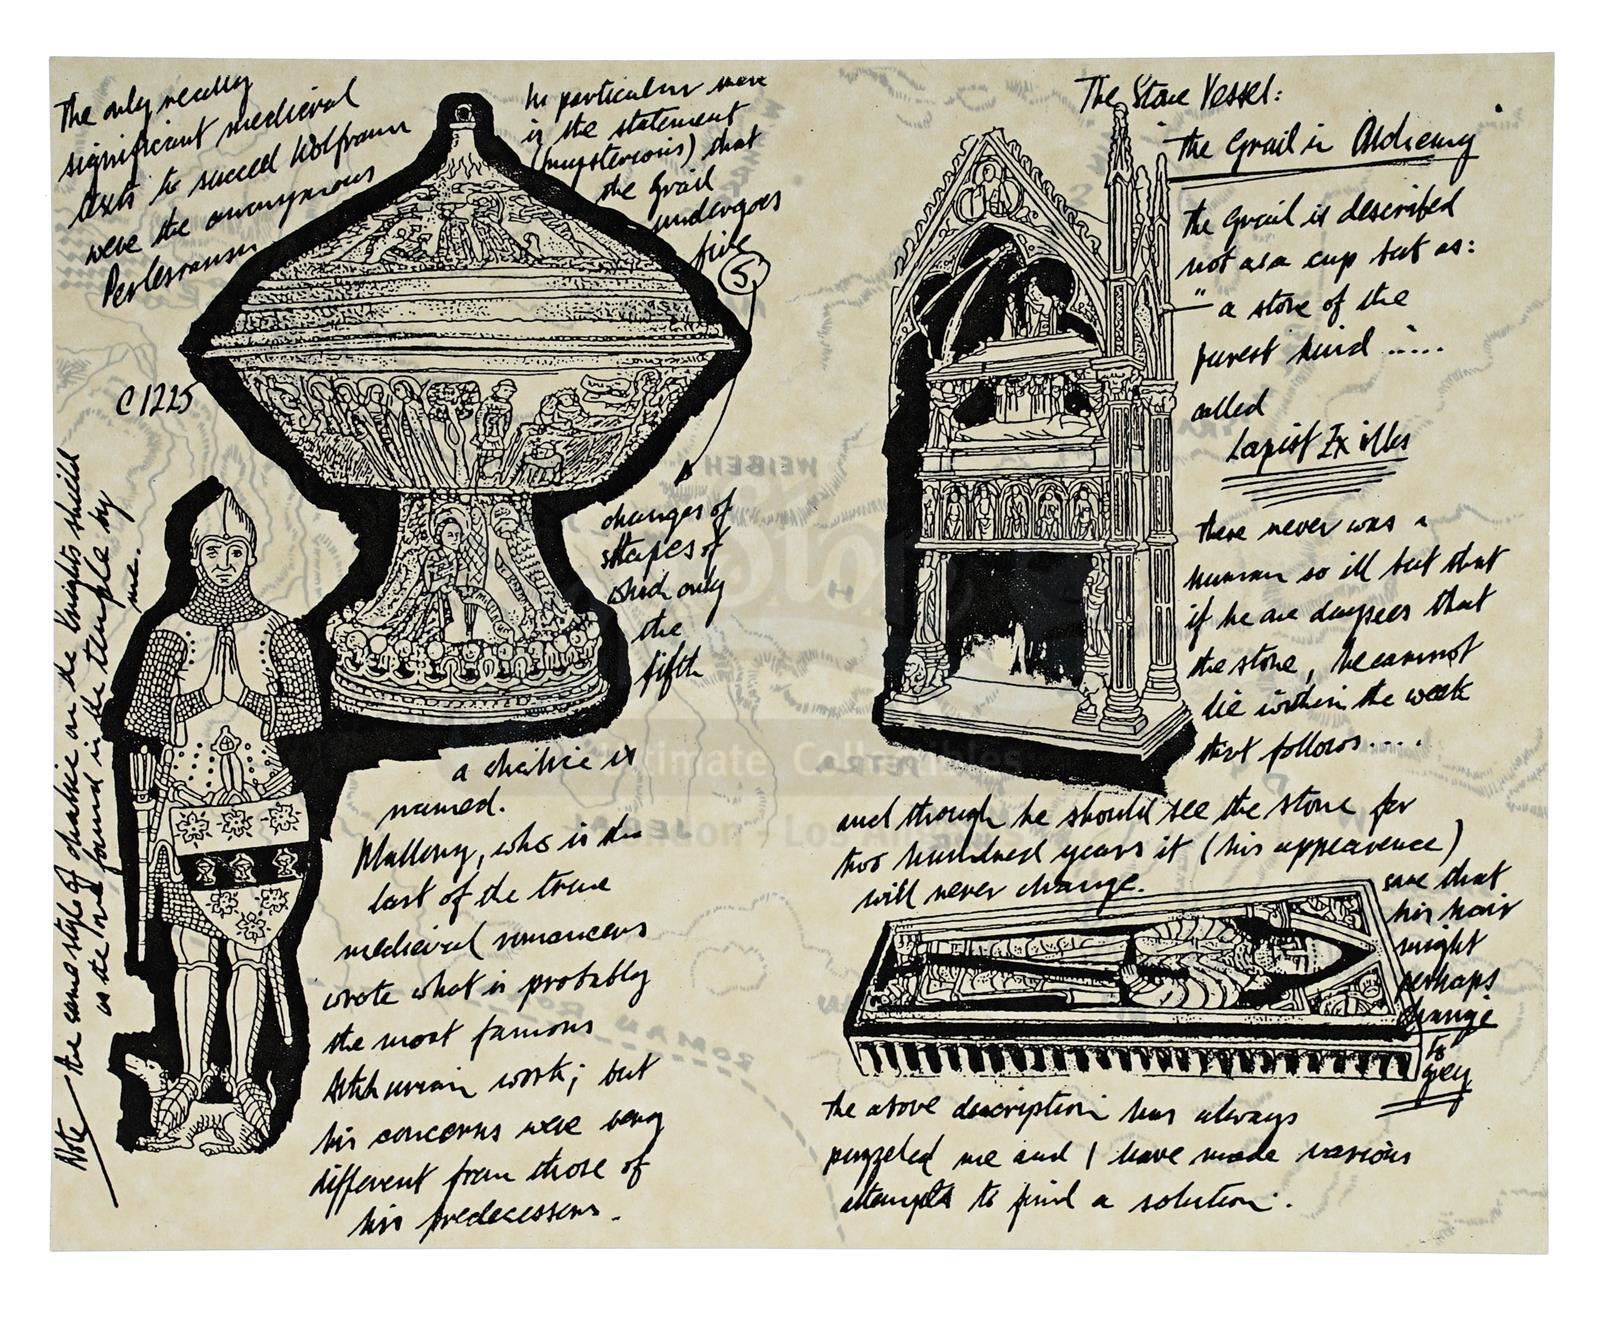 The only really
significant medieval
texts to succeed Wolfram
were the anonymous
Perlesvaus
In particular were
is the statement
(mysterious) that
the Grail
undergoes
five
5
changes of
shapes of
which only
the
fifth
C1225
a chalice is
named.
Mallory, who is the
last of the true
medieval romancers
wrote what is probably
the most famous
Arthurian work; but
his concerns were very
different from those of
his predecessors.
Note the same style of chalice on the Knights shield
as the one found in the temple by
me.
The Stone Vessel:
the Grail in Alchemy
the Grail is described
not as a cup but as:
"a stone of the
purest kind .....
called
Lapist Ex illis
there never was a
human so ill but that
if he one day sees that
the stone, he cannot
die within the week
that follows....
and though he should see the stone for
two hundred years it (his appearance)
will never change.
save that
his hair
might
perhaps
change
to
grey
the above description has always
puzzeled me and I have made various
attempts to find a solution.
WEIBEH
ROMAN ROAD
Ultimate Collectibles
London - Los